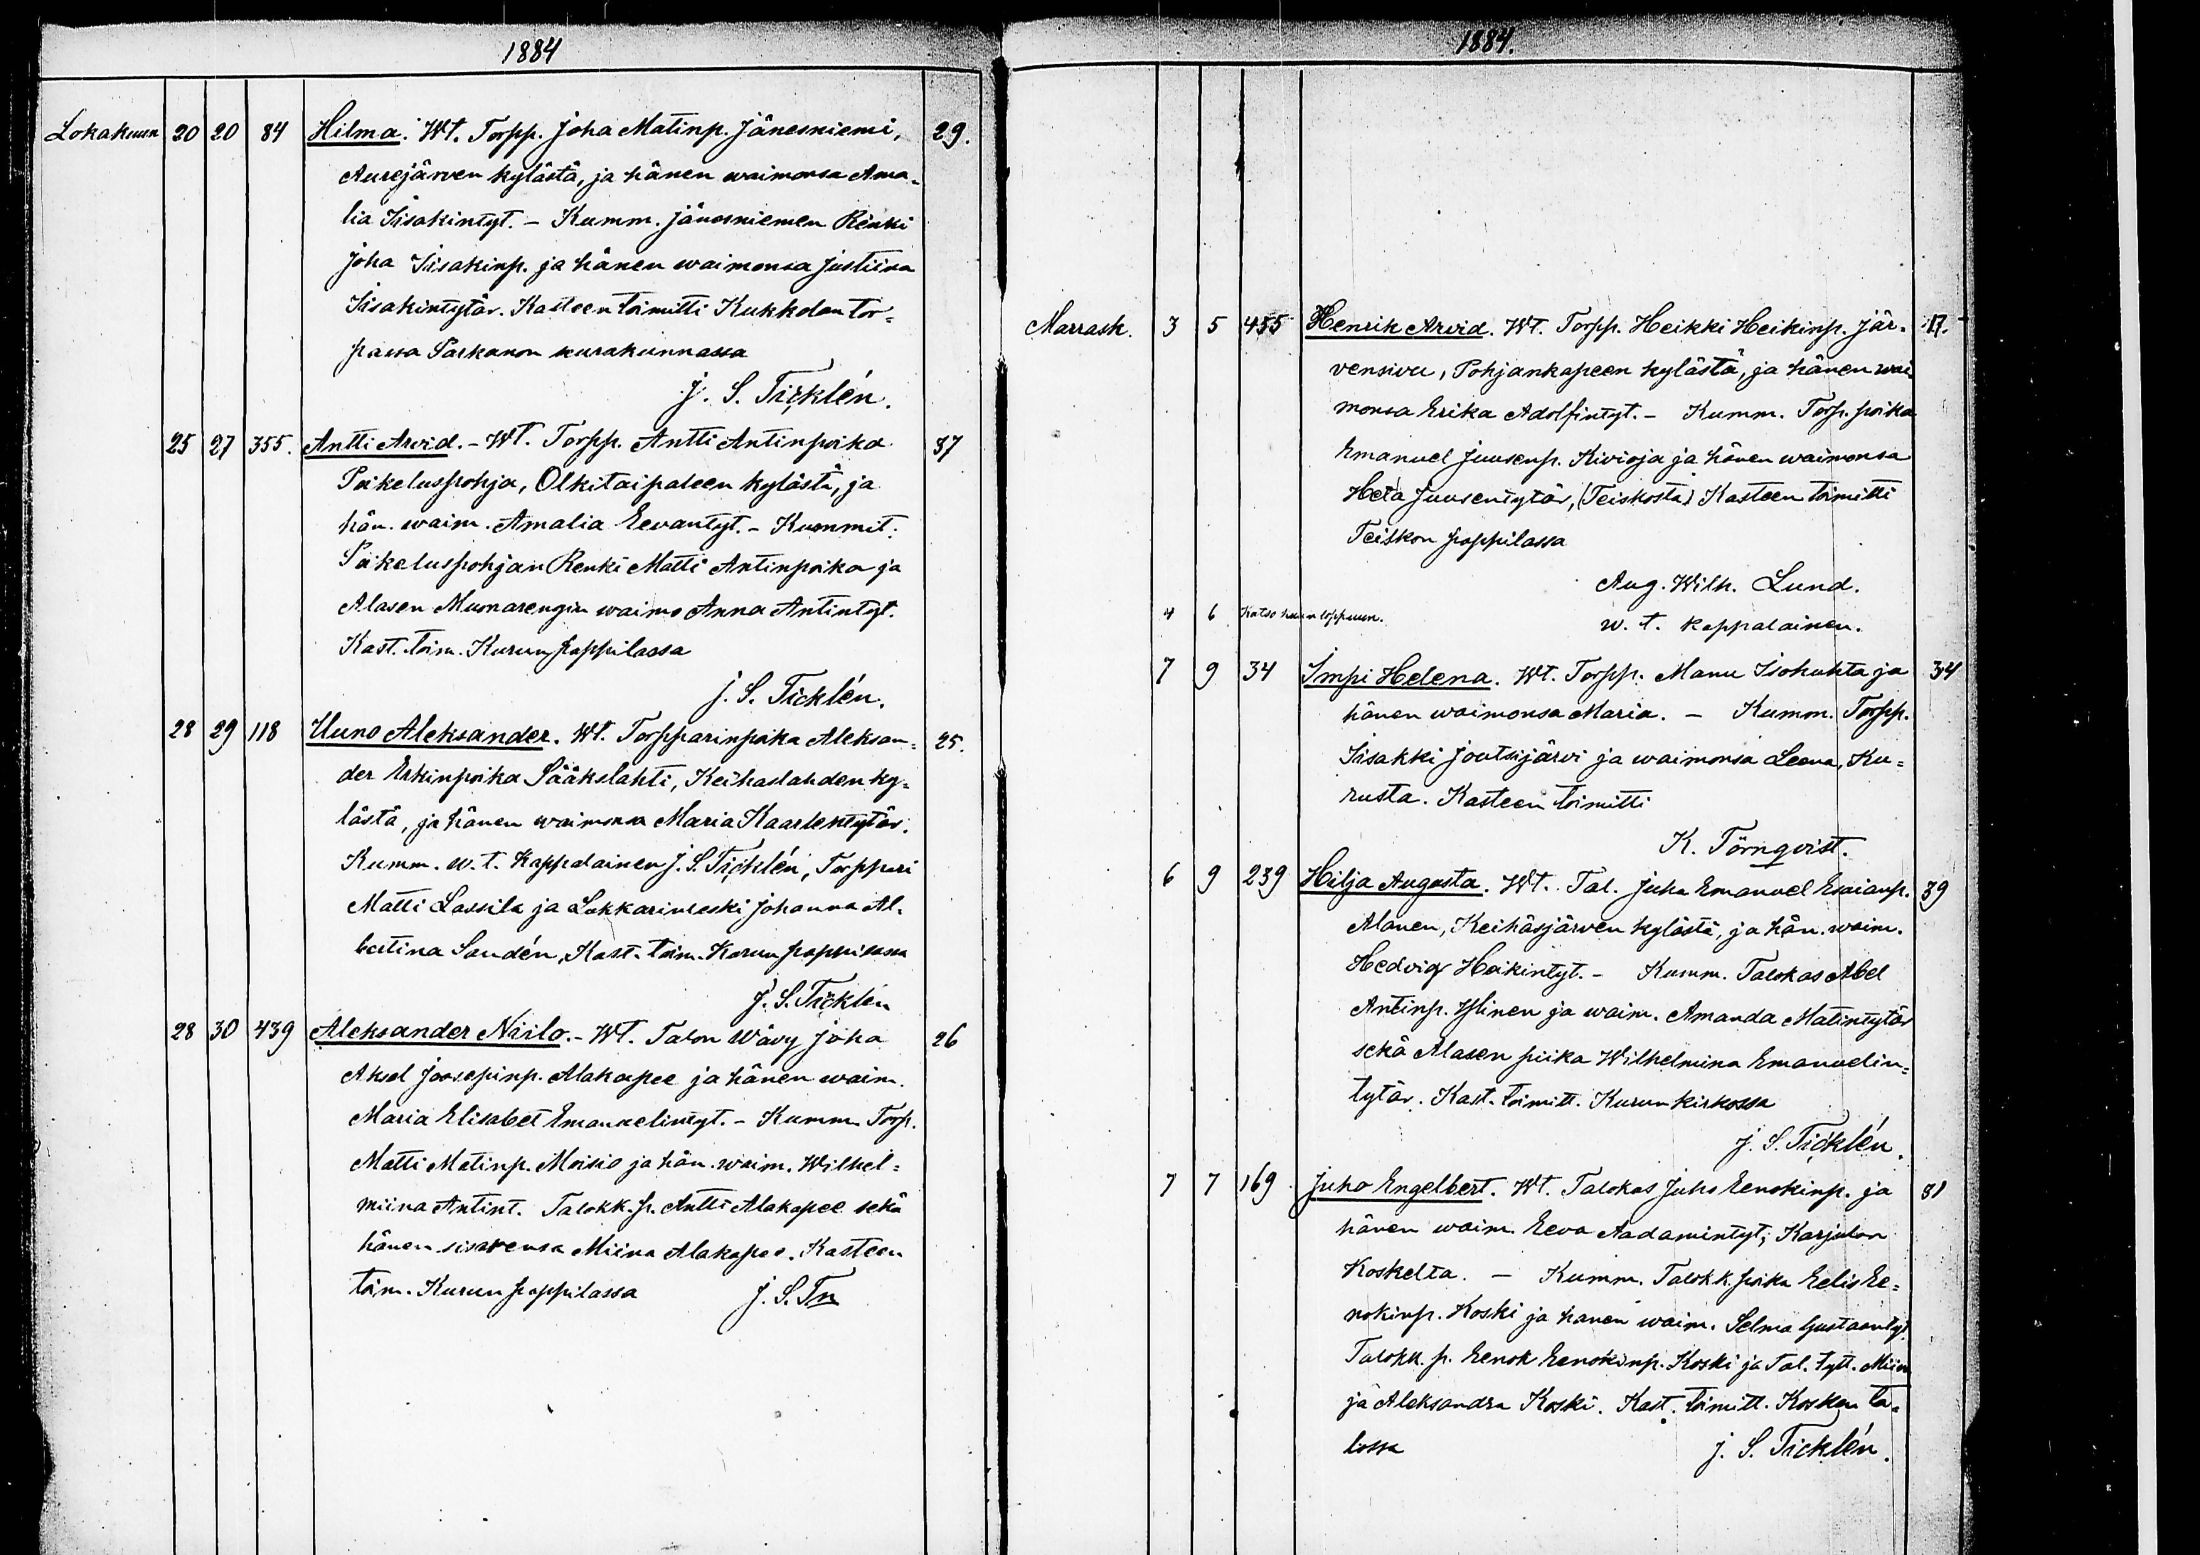 1884
Lokakuun 20 20 84 Hilma. Wt. Torpp. Joha Matinp. Jänesniemi, 29.
Aurejärven kylästä, ja hänen waimonsa Ama-
lia Iisakintyt. – Kumm. Jänesniemen Renki
Joha Iisakinp. ja hänen waimonsa Justiina
Iisakintytär. Kasteen toimitti Kukkolan tor-
passa Parkanon seurakunnassa
J. S. Ticklén.
25 27 355. Antti Arvid. – Wt. Torpp. Antti Antinpoika 37
Poikeluspohja, Olkitaipaleen kylästä, ja
hän. waim. Amalia Eevantyt. – Kummit:
Poikeluspohjan Renki Matti Antinpoika ja
Alasen Muonarengin waimo Anna Antintyt.
Kast. toim. Kurun pappilassa
J. S. Ticklén.
28 29 118 Uuno Aleksander. Wt. Torpparinpoika Aleksan= 25.
der Erkinpoika Sääkslahti, Keihaslahden ky=
lästä, ja hänen waimonsa Maria Kaarlentytär.
Kumm. w. t. Kappalainen J. S. Ticklén, Torppari
Matti Lassila ja Lukkarinleski Johanna Al-
bertina Sandén, Kast. toim. Kurun pappilassa
J. S. Ticklén
28 30 439 Aleksander Niilo. – Wt. Talon Wävy Joha 26
Aksel Joosepinp. Alakapee ja hänen waim.
Maria Elisabet Emanuelintyt. – Kumm. Torp.
Matti Matinp. Moisio ja hän. waim. Wilhel=
miina Antint. Talokk. p. Antti Alakapee sekä
hänen sisarensa Miina Alakapee. Kasteen
toim. Kurun pappilassa J. S. Tn
1884.
Marrask. 3 5 455 Henrik Arvid. Wt. Torpp. Heikki Heikinp. Jär= 17.
vensivu, Pohjankapeen kylästä, ja hänen wai
monsa Erika Adolfintyt. – Kumm. Torp. poika
Emanuel Juusenp. Kivioja ja hänen waimonsa
Heta Juusentytär, (Teiskosta) Kasteen toimitti
Teiskon pappilassa
Aug. Wilh. Lund.
4 6 Katso kuun loppuun.
w. t. kappalainen.
7 9 34 Impi Helena. Wt. Torpp. Manu Isohuhta ja 34
hänen waimonsa Maria. – Kumm. Torpp.
Iisakki Joutsijärvi ja waimonsa Leena, Ku=
rusta. Kasteen toimitti
K. Törnqvist.
6 9 239 Hilja Augusta. Wt. Tal. Juha Emanuel Esaianp. 39
Alanen, Keihäsjärven kylästä, ja hän. waim.
Hedvig Heikintyt. – Kumm. Talokas Abel
Antinp. Ylinen ja waim. Amanda Matintytär
sekä Alasen piika Wilhelmina Emanuelin=
tytär. Kast. toimitt. Kurun kirkossa
J. S. Ticklén.
7 7 169 Juho Engelbert. Wt. Talokas Juho Eenokinp. ja 31
hänen waim. Eeva Aadamintyt, Karjulan
Koskelta. – Kumm. Talokk. poika Eelis Ee=
nokinp. Koski ja hanen waim. Selma Gustaantyt.
Talokk. p. Eenok Eenokinp. Koski ja Tal. tytt. Miina
ja Aleksandra Koski. Kast. toimitt. Kosken ta=
lossa J. S. Ticklén.